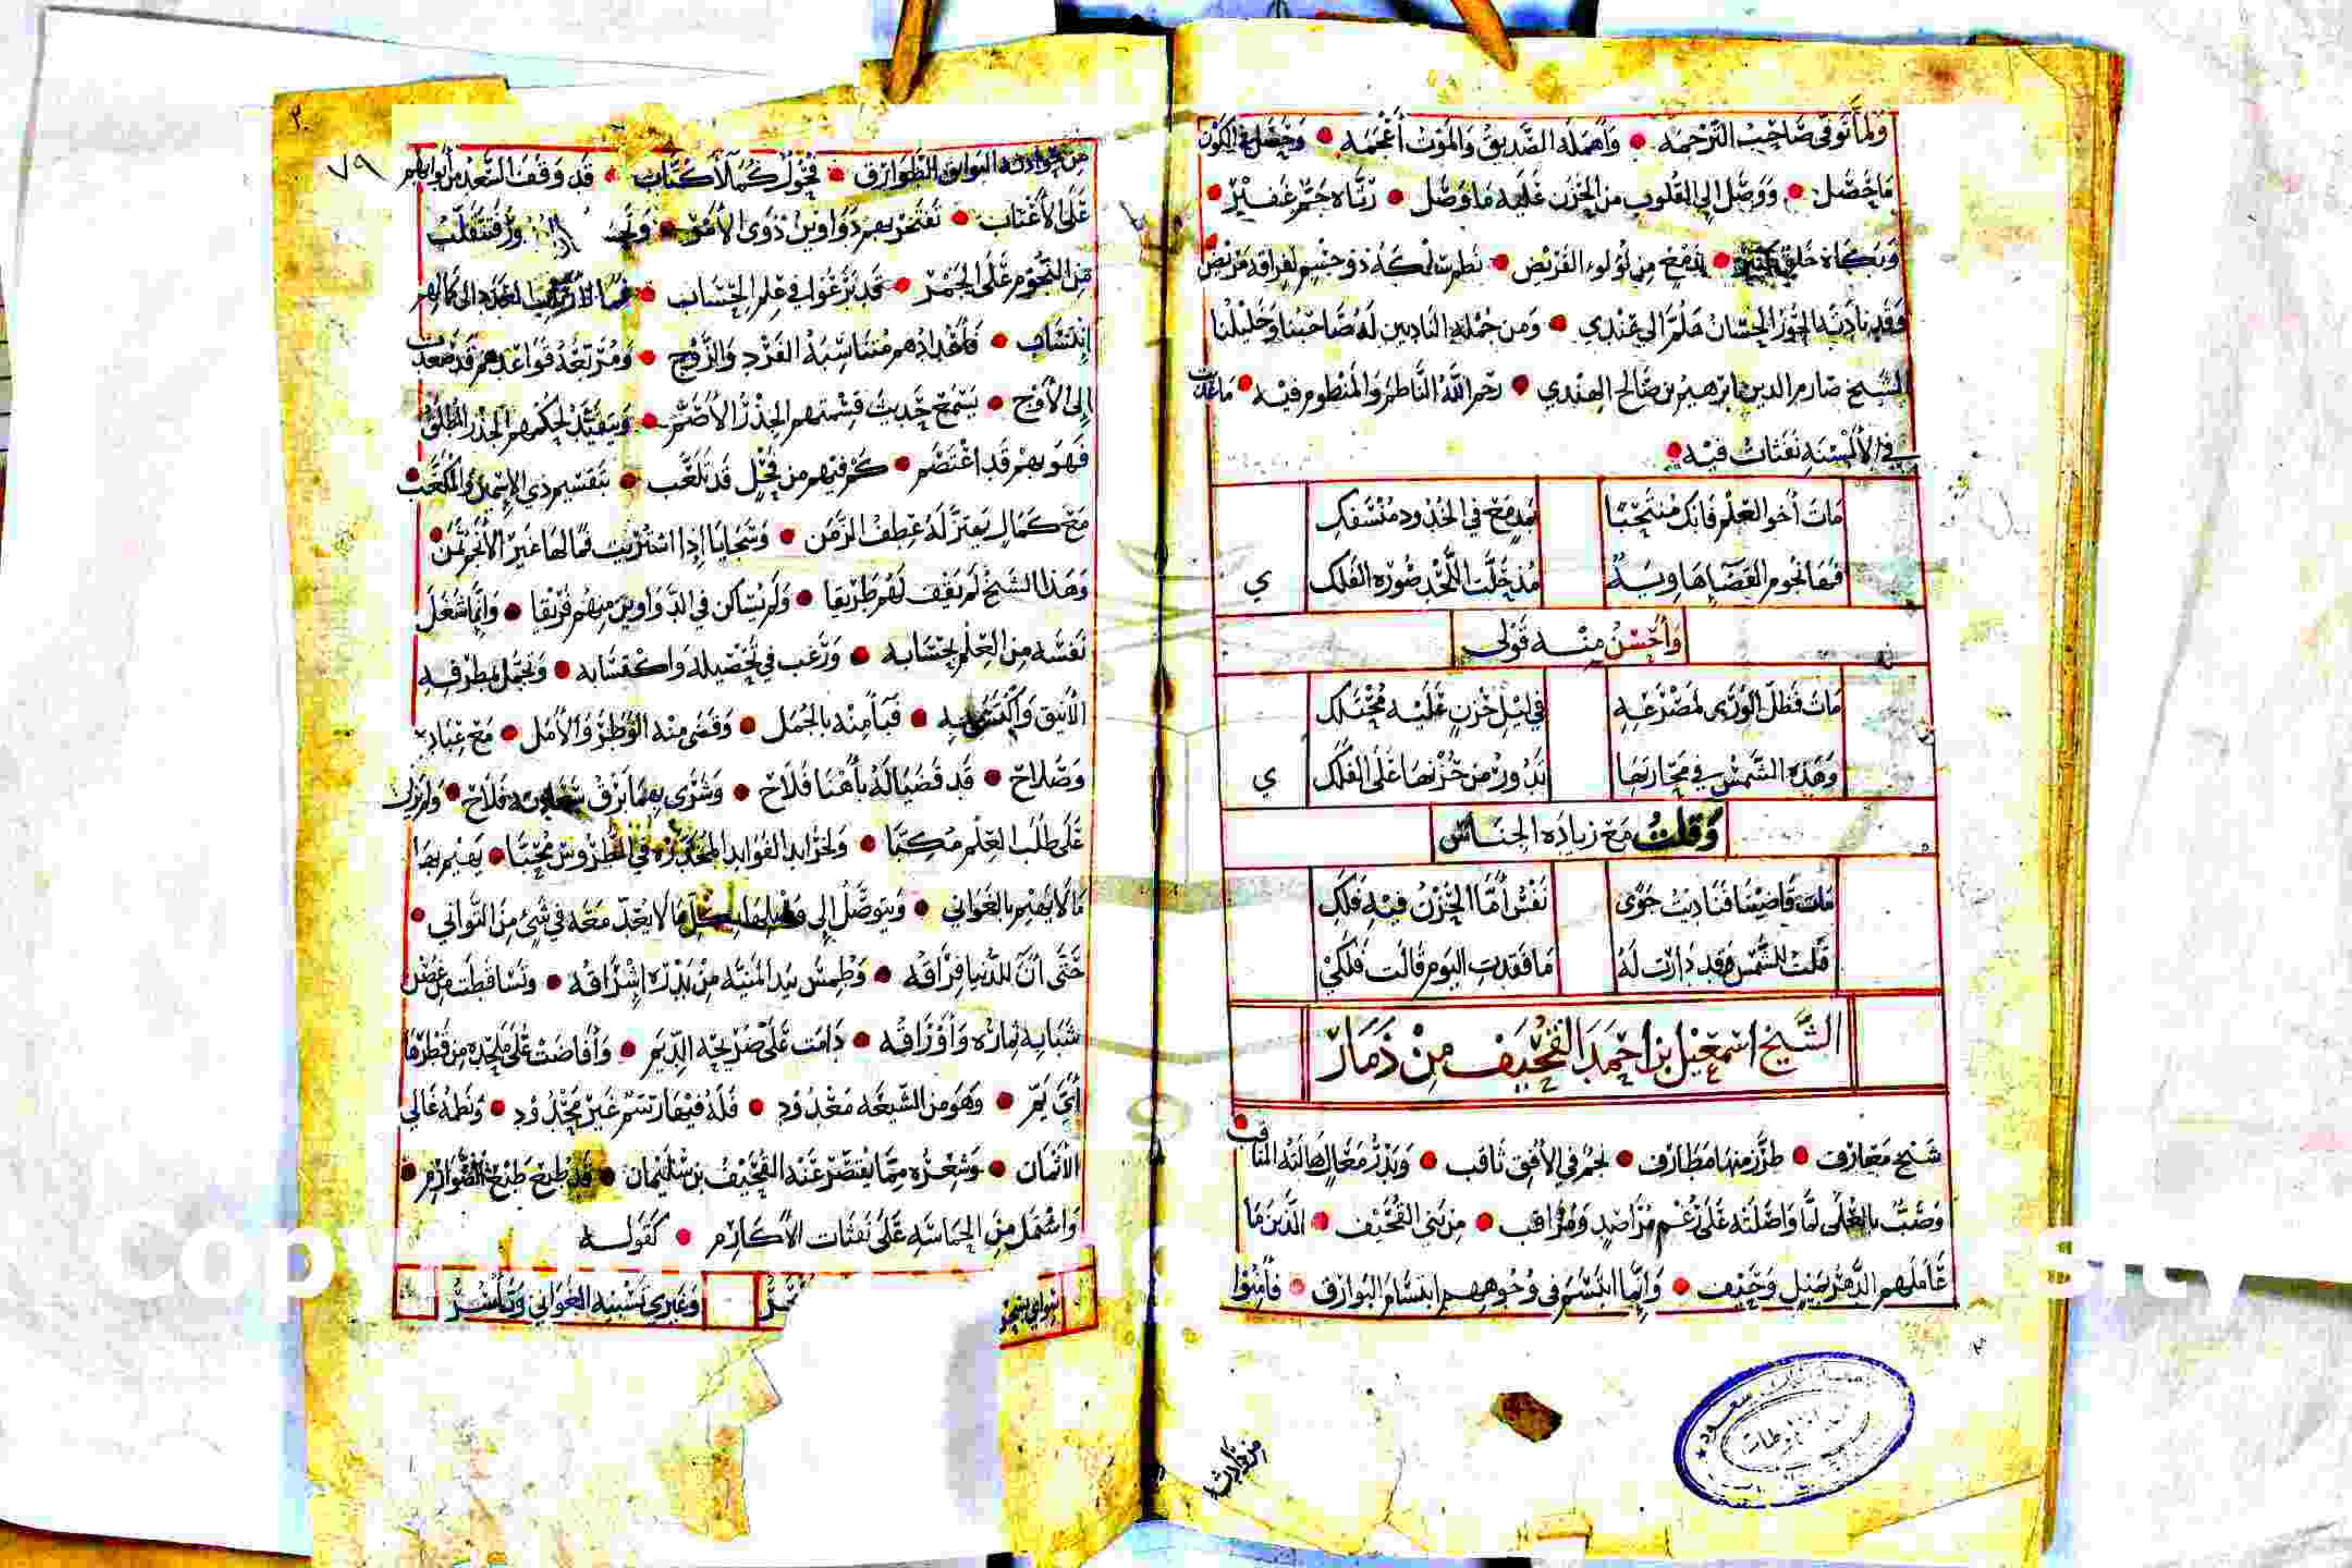 ولما توفي صاحب الترجمة • وأهمله الصديق والموت أعجمه • وحصل في الكون
ما حصل • ووصل إلى القلوب من الحزن عليه ما وصل • رثاه جم غفير •
وبكاه خلق • بدمع من لؤلوء القريض • نظمت لكه ذو جسم لفراقه مريض
وقد نادته الحور الحسان هلم إلى عندي • ومن جملة النادبين له صاحبنا وخليلنا
الشيخ صارم الدين إبرهيم بن صالح الهندي • رحم الله الناظم والمنظوم فيه • ما غدت
في الألسنة نفثات فيه •
مات أخو العلم فابك منتحبا بمدمع في الخدود منسفك
فها نجوم القضا هاوية مذ حلت اللحد صورة الفلك ي
وأحسن منه قولي
مات فظل الورى لمصرعه في ليل حزن عليه محتلك
وهذه الشمس في مجاريها تدور من حزنها على الفلك ي
وقلت مع زيادة الجناس
مات قاضينا فناديت جوى نفس أما الحزن فيه فلك
قلت للشمس وقد دارت له ما فقدت اليوم قالت فلكي
الشيخ اسمعيل بن احمد القحيف من ذمار
شيخ معارف • طرز منها مطارف • نجم في الأفق ثاقب • وبدر معال هالته المناقب
وصب بالعلى لما واصلته على رغم مراصد ومراقب • من بني القحيف • الذين ما
عاملهم الدهر بميل وحيف • وإنما ابتسم في وجوههم ابتسام البوارق • فأمنوا
من حوادث
٧٩
من حوادثه البوائق الطوارق • فحول كملا كتاب • قد وقف السعد من أبوابهم
على الأعتاب • تفتخر بهم دواوين ذوي الأمر •
من النجوم على الجمر • قد برعوا في علم الحساب • إلى كمالهم
انتساب • فأعدادهم متناسبة الفرد والزوج • ومرتبعة قواعدهم قد صعدت
إلى الأوج • يسمع حديث قسمتهم الجذر الأصم • ويتقيد لحكمهم الجذر المطلق
فهو بهم قد اعتصم • كم فيهم من فحل قد تلعب • بتقسيم ذي الإسمين والمكعب
مع كمال يهتز له عطف الزمن • وسجايا إذا اشتريت فما لها غير الأنجم ثمن •
وهذا الشيخ لم يقف لهم طريقا • ولم يساكن في الدواوين منهم فريقا • وإنما شغل
نفسه من العلم بحسابه • ورغب في تحصيله واكتسابه • وتجمل بمطرفه
الأنيق • فبآ منه بالجمل • وقضى منه الوطر والأمل • مع عبادة
وصلاح • قد قضيا له بأهنا فلاح • وسرى بهما برق سعادته فلاح • ولم يزل
على طلب العلم مكبا • ولخرايد الفوايد المخدرة في الطروس محبا • يهيم بها
ما لا يهيم بالغواني • ويتوصل إلى وصلها بكل ما لا يعد معه في شيء من التواني •
حتى آن للدنيا فراقه • وطمس بيد المنية من بدره إشراقه • وتساقطت من غصن
شبابه ثماره وأوراقه • دامت على ضريحه الديم • وأفاضت على ملحده من قطرها
أي يم • وهو من الشيعة معدود • فله فيها رسم غير محدود • ونظمه غالي
الأثمان • وشعره مما يقصر عنه القحيف بن سليمان • قد طبع طبع الصوارم •
واشتمل من الحماسة على نفثات الأكارم • كقوله
وغيري تشبيه الغواني وتأسر